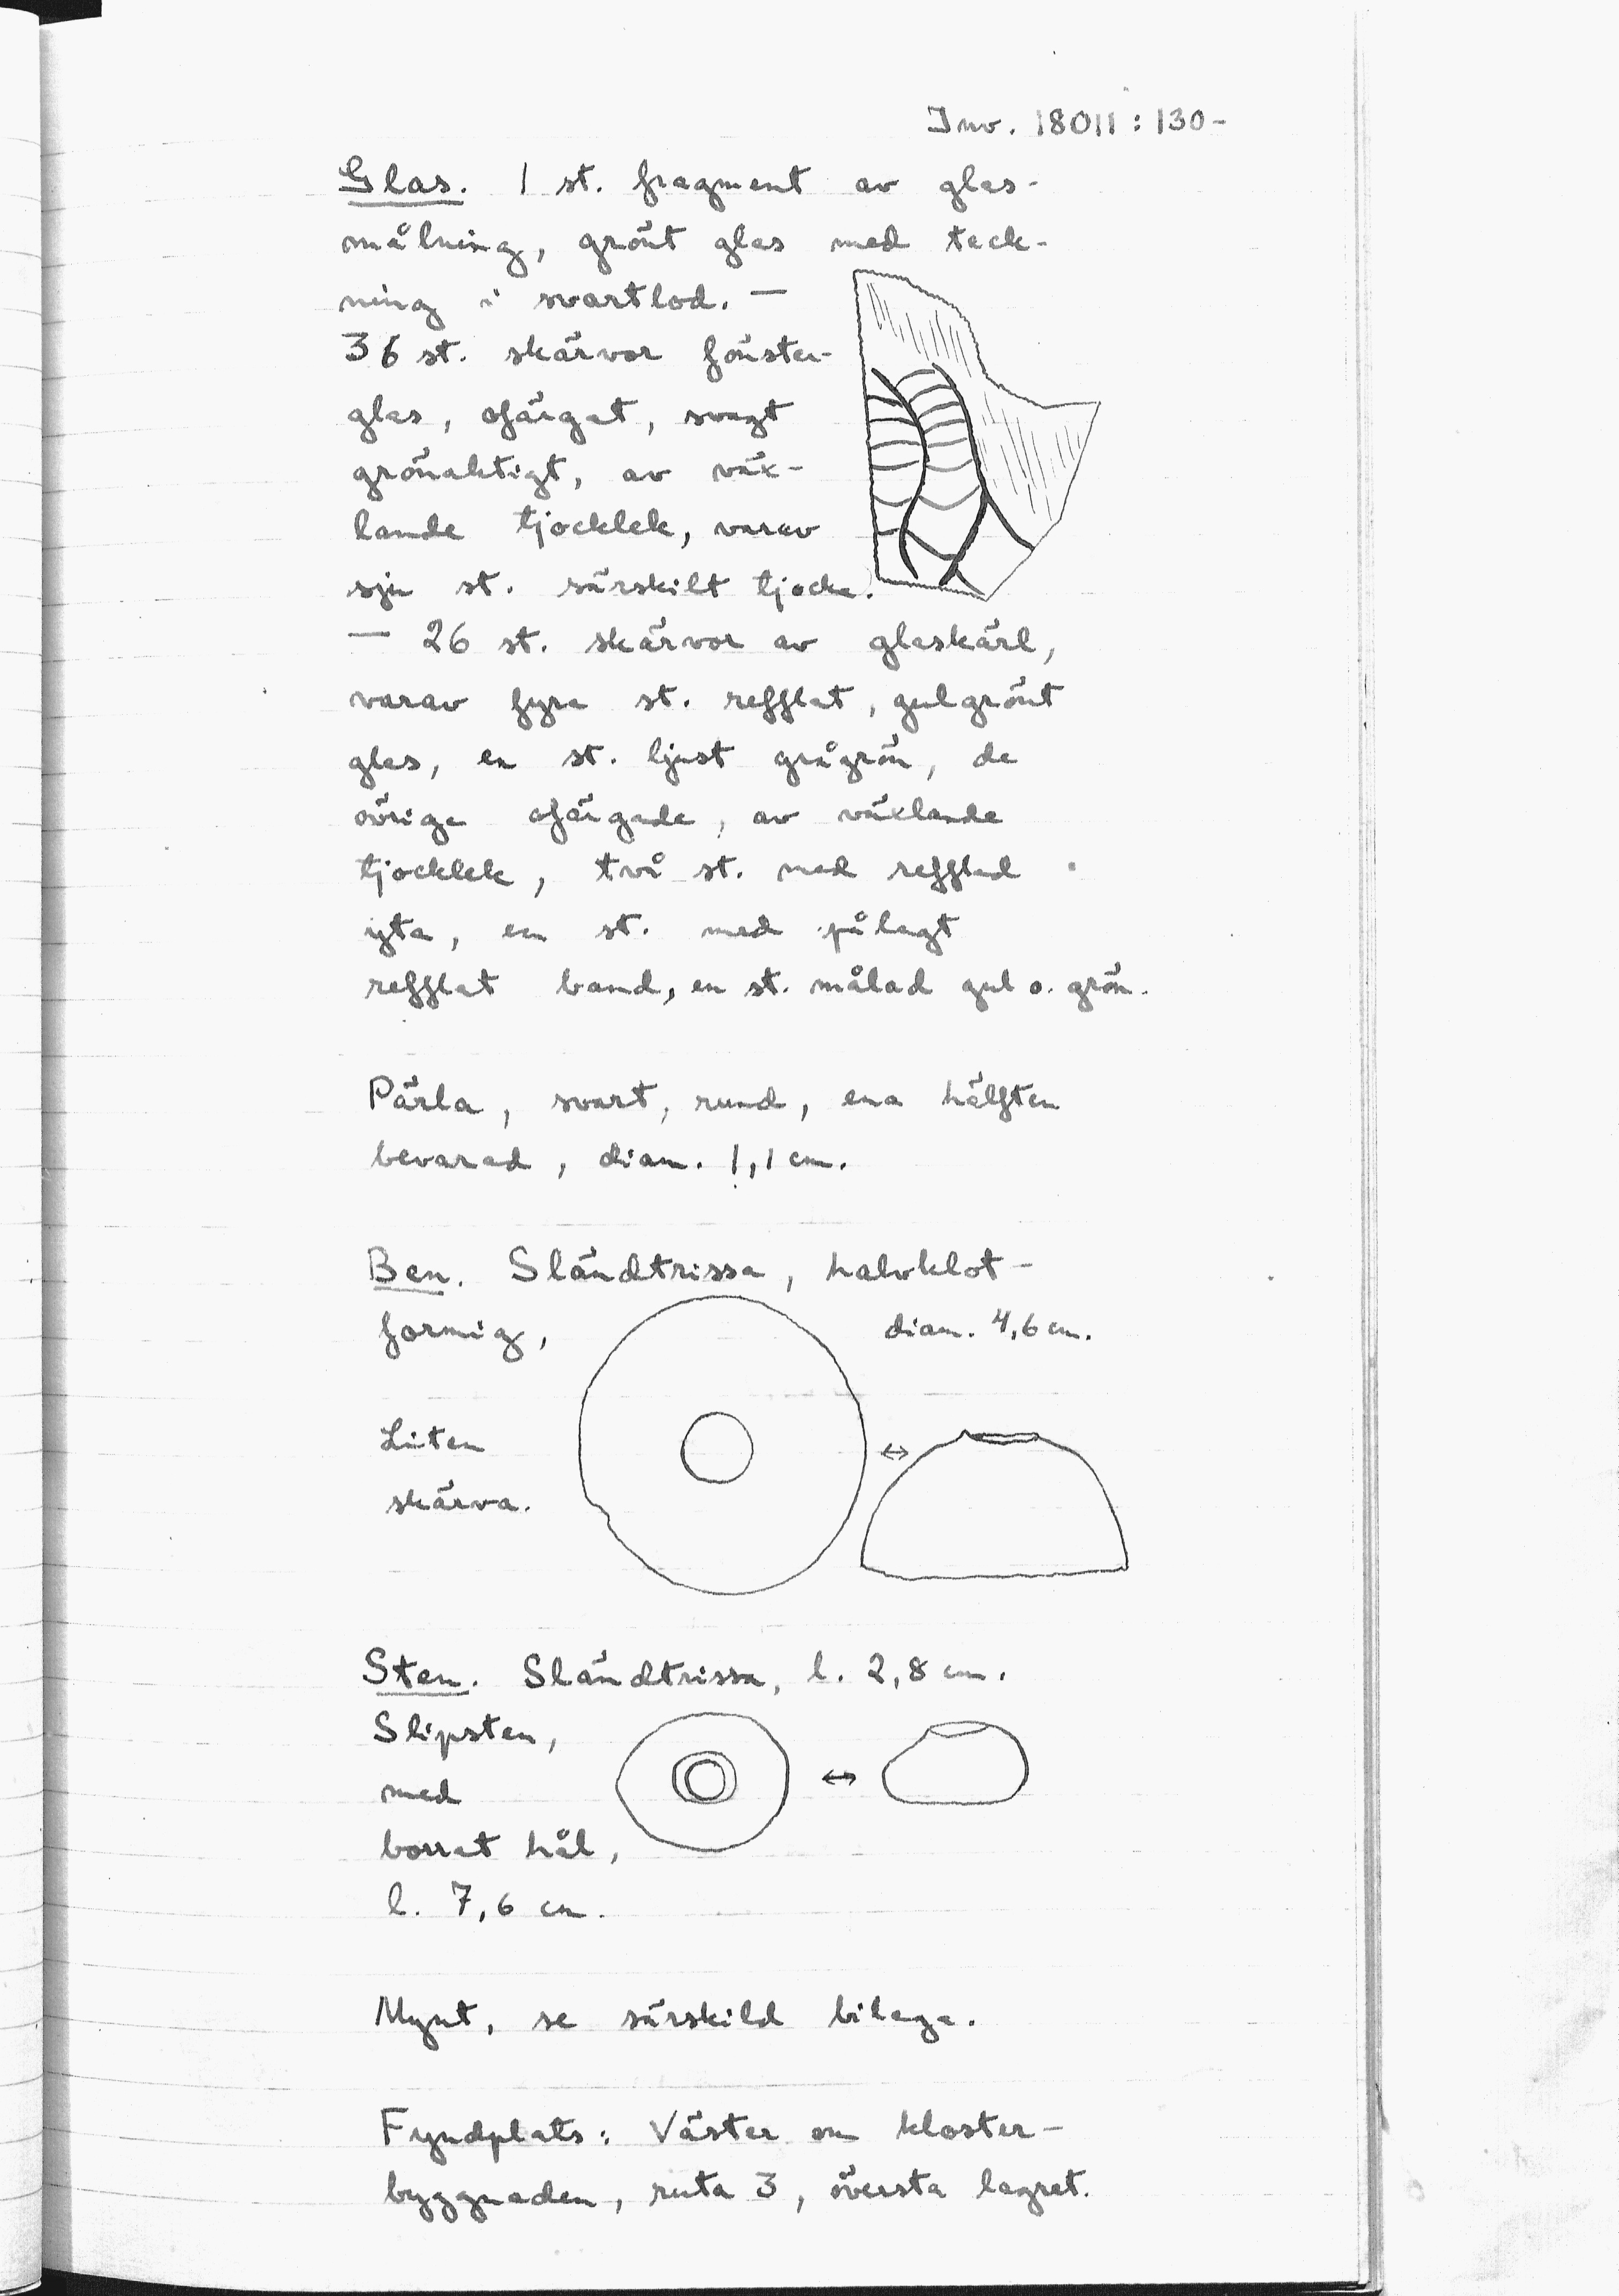 Inv. 18011:130-
Glas. 1 st. fragment av glas-
målning, grönt glas med teck-
ning i svartlod. —
36 st. skärvor fönster-
glas, ofärgat, svagt
grönaktigt, av väx-
lande tjocklek, varav
sju st. särskilt tjocka.
— 26 st. skärvor av glaskärl,
varav fyra st. refflat, gulgrönt
glas, en st. ljust grågrön, de
övriga ofärgade, av växlande
tjocklek, två st. med refflad
yta, en st. med pålagt
refflat band, en st. målad gul o. grön.
Pärla, svart, rund, ena hälften
bevarad, diam. 1,1 cm.
Ben. Sländtrissa, halvklot-
formig, diam. 4,6 cm.
Liten
skärva.
Sten. Sländtrissa, l. 2,8 cm.
Slipsten,
med
borrat hål,
l. 7,6 cm.
Mynt, se särskild bilaga.
Fyndplats: Väster om kloster-
byggnaden, ruta 3, översta lagret.